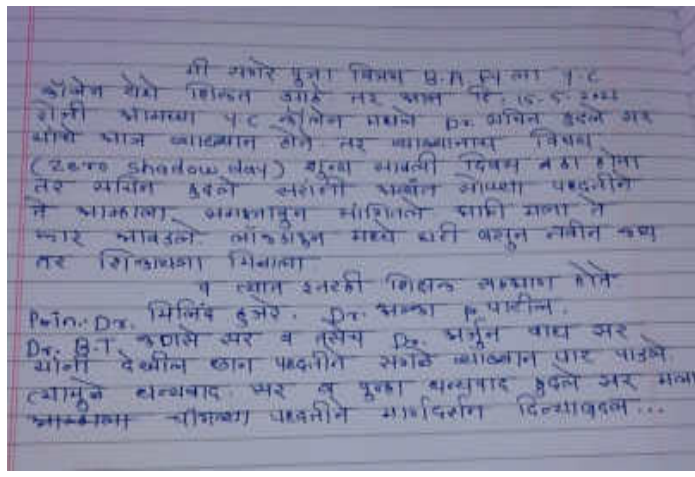 मी सगरे पुजा विजय B.A F.Y ला Y.C
कॉलेज येथे शिकत आहे तर आज दि. 15-5-2022
रोजी आमच्या Y C कॉलेज मधले Dr. सचिन कुदले सर
यांचे आज व्याख्यान होते. तर व्याख्यानाचा विषय
(zero shadow day) शून्य सावली दिवस असा होता
तर सचिन कुदले सरांनी अत्यंत सोप्या पद्धतीने
ते आम्हाला समजावून सांगितले आणि मला ते
फार आवडले. लॉकडाऊन मध्ये घरी बसून नवीन
तर शिकायला मिळाला
व त्यात इतरही शिक्षक होते
Prin. Dr. मिलिंद हुजरे. Dr. अलका P. पाटील.
Dr. B.T. कणसे सर व तसेच Dr. अर्जुन वाघ सर
यांनी देखील छान पद्धतीने सगळे व्याख्यान पार पाडले.
त्यामुळे धन्यवाद सर व पुन्हा धन्यवाद कुदले सर मला
आम्हाला चांगल्या पद्धतीने मार्गदर्शन दिल्याबद्दल...